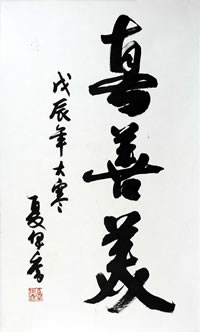 真善美
戊辰年大寒
夏伊喬